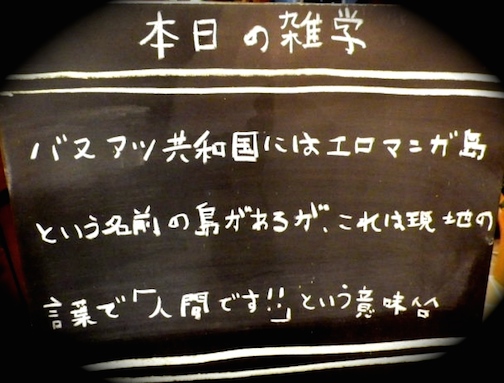 本日の雑学
バヌアツ共和国にはエロマンガ島
という名前の島があるが、これは現地の
言葉で「人間です!!」という意味